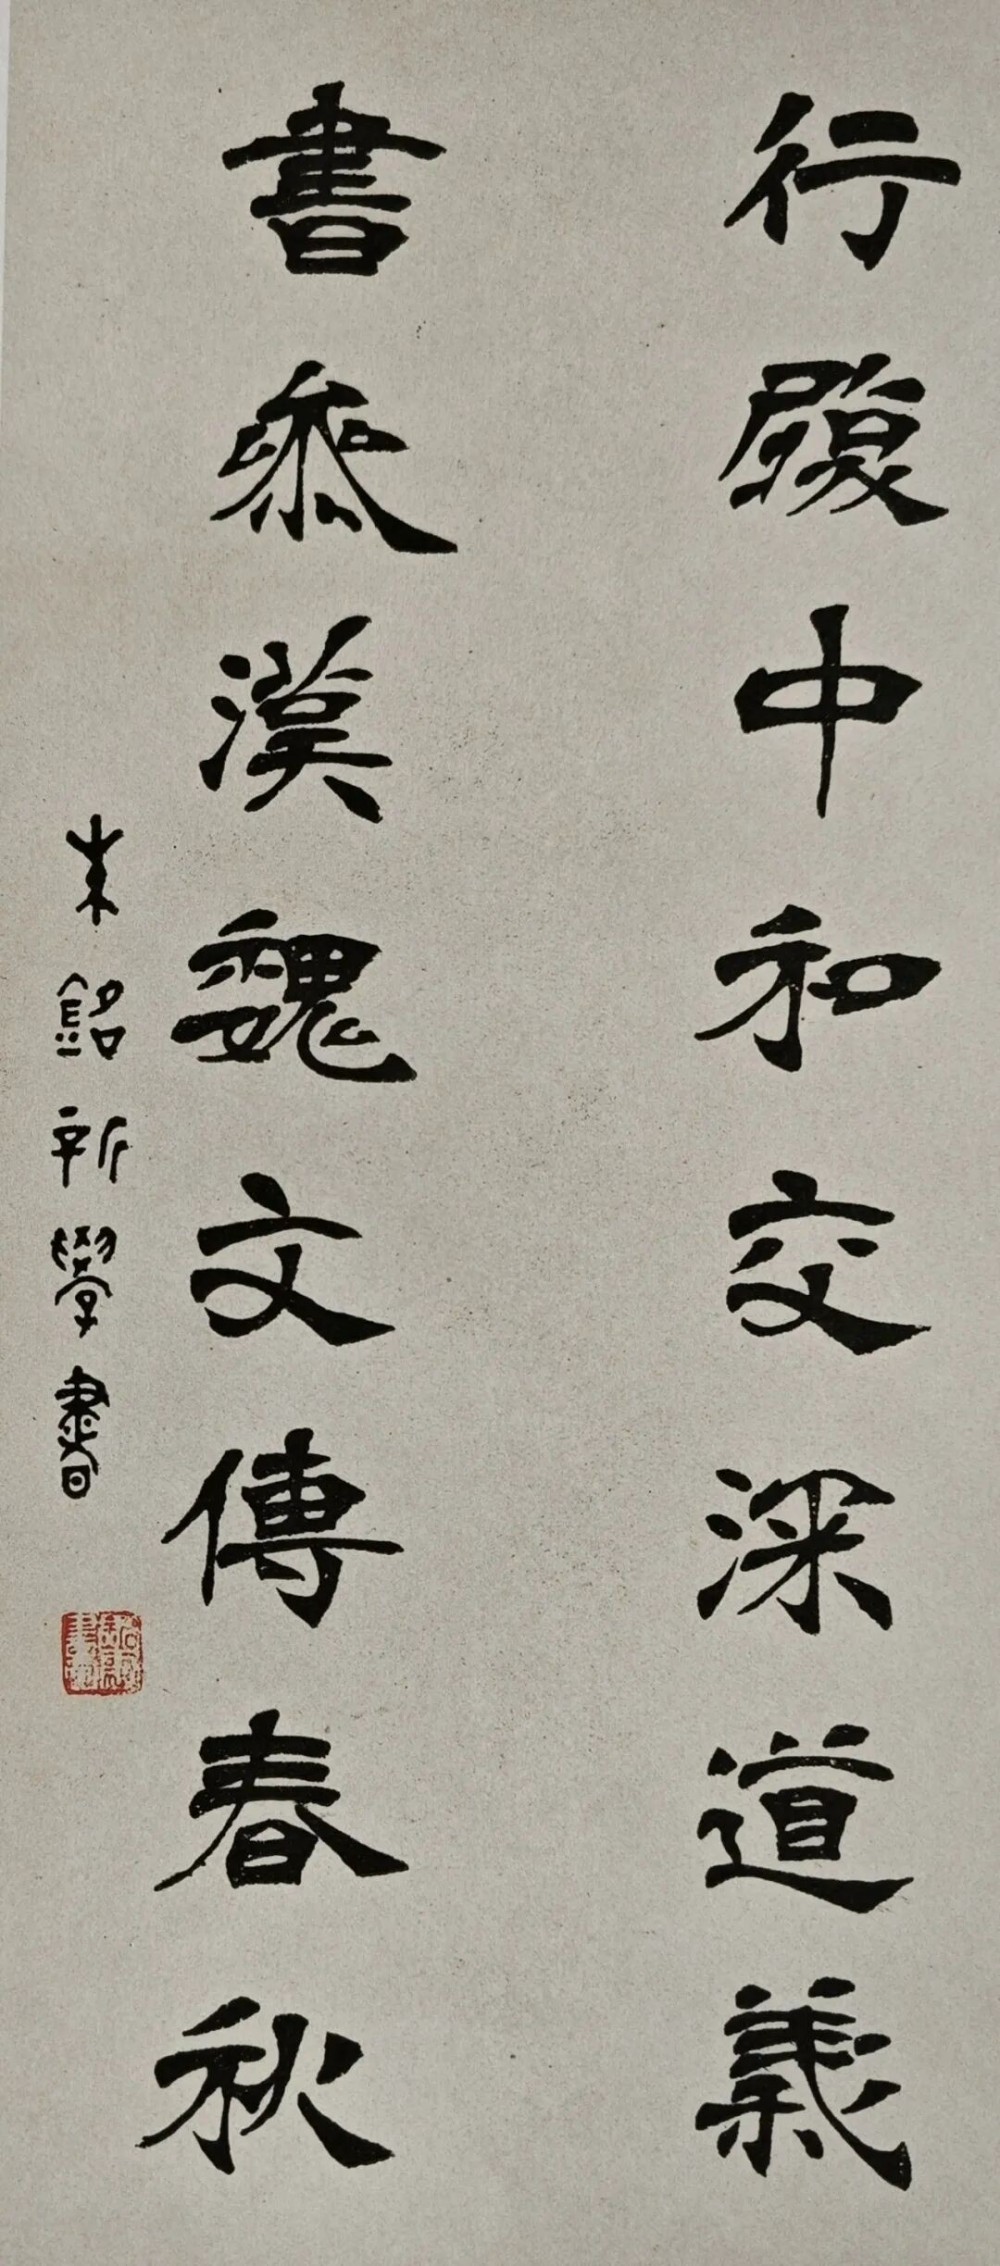 行履中和交深道義
書叅漢魏文傳春秋
朱銘新學書